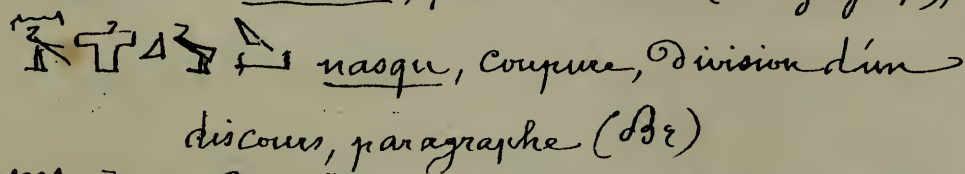 nasqu, Coupure, Division d'un
discours, paragraphe (Br)